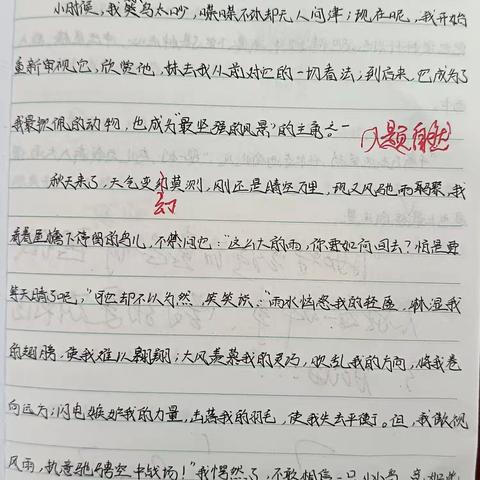 小时候，我笑鸟太吵，喋喋不休却无人问津；现在呢，我开始
重新审视它，欣赏他，抹去我从前对它的一切看法；到后来，它成为了
我最佩的动物，也成为"最坚强的风景"的主角之一
入题自然
秋天来了，天气变幻莫测，刚还是晴空万里，现又风驰雨骤，我
幻
看着屋檐下待的鸟儿，不禁问它："这么大的雨，你要如何回去？怕是要
等天晴了吧，"可它却不以为然，笑笑说："雨水恼怒我的轻盈，淋湿我
的翅膀，使我难以翱翔；大风羡慕我的灵巧，吹乱我的方向，将我卷
向远方；闪电嫉妒我的力量，击落我的羽毛，使我失去平衡了。但，我傲视
风雨，执意驰骋空中战场！"我愕然了，不敢相信一只小小鸟